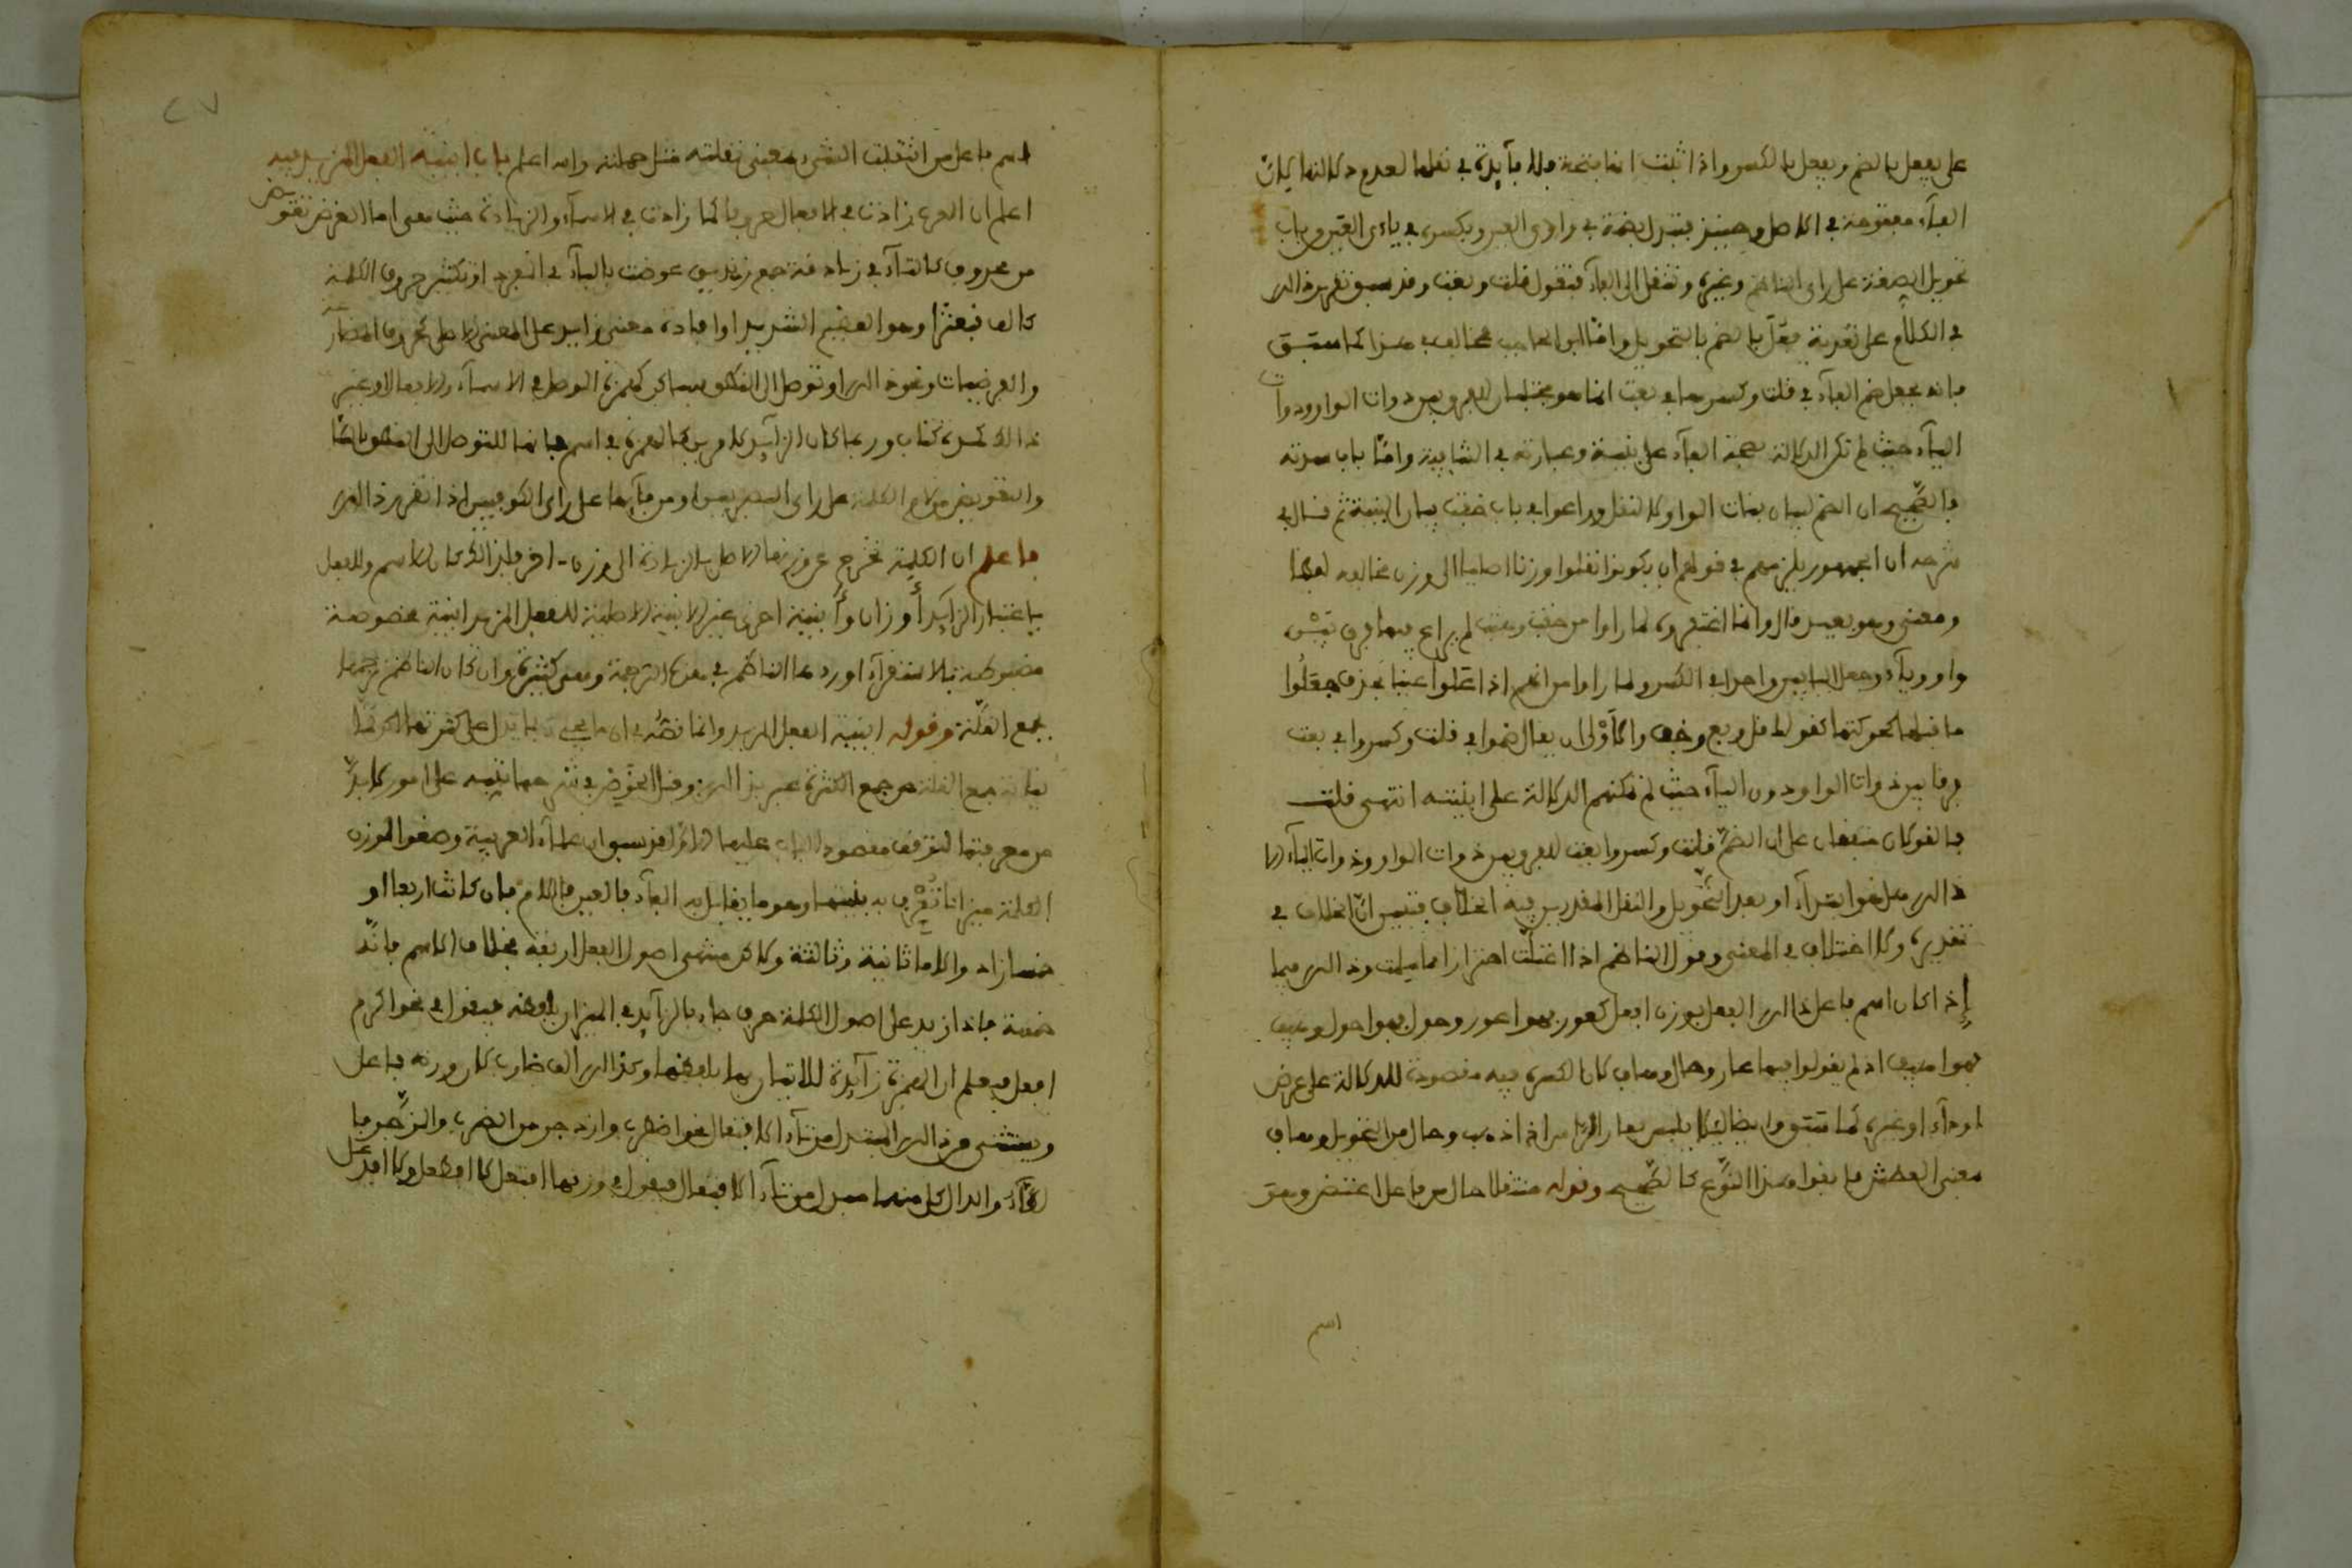 على يفعل بالضم ويفعل بالكسر واذا ثبت انها فتحة فلا فآيدة في نقلها لعدم دلالتها لان
الفآء مفتوحة في الاصل وحينئذ تبدل بضمة في واوي العين وبكسرة في ياءى العين وباب
تحويل الصفة على راى الناظم وغيره وتنقل الى الفآء فتقول قلت وبعت وقد سبق تقرير ذالك
في الكلام على تعدية فعل بالضم بالتحويل واما ابن الحاجب مخالف في هذا كما سبق
فانه يجعل ضم الفآء في قلت وكسرها في بعت انما هو مجتلب للفرق بين ذوات الواو وذوات
اليآء حيث لم تكن الدلالة بحركة الفآء على بنية وعبارته في الشافية واما باب سدته
فالصحيح ان الضم لبيان بنات الواو لا للنقل وراعوا في باب خفت بيان البنية ثم قال في
شرحه ان الجمهور يلزمهم في قولهم ان يكونوا نقلوا وزنا اصليا الى وزن مخالفه لفظا
ومعنى وهو بعيد قال وانما اغتفروه لما راوا من خفت وهبت لم يراع فيهما فرق بين
واو وياء وجعل البابين واحدا في الكسر ولما راوا من انهم اذا اعلوا عينا بحذف جعلوا
ما قبلها كحركتها كقولك قل وبع وخف والاولى ان يقال ضموا في قلت وكسروا في بعت
فرقا بين ذوات الواو وذوات اليآء حيث لم تمكنهم الدلالة على البنية انتهى قلت
فالقولان متفقان على ان الضم قلت وكسروا بعت للفرق بين ذوات الواو وذوات اليآء
ذالك هل هو ابتدآء او بعد التحويل والنقل المقدرين فيه اختلاف فتبين ان الخلاف في
تقديره ولا اختلاف في المعنى وقول الناظم اذا اعتلت احترازا مما سلمت وذالك فيما
إذا كان اسم فاعل ذالك الفعل بوزن افعل كعور فهو اعور وحول فهو احول وهيف
فهو اهيف اذ لم يقولوا فيها عار وحال وهاف كانت الكسرة فيه مقصودة للدلالة على عرض
او دآء او غيره كما ستتو ايضا ليلا يلتبس بعار الرجل اذا ذهب وحال من التحويل وهاف
معنى العطش فابقوا هذا النوع كالصحيح وقوله متصلا حال من فاعل اعتضر وهو
اسم
اسم فاعل من اثقلت الشيء بمعنى ثقلته مثل حملته والله اعلم باب ابنية الفعل المزيد فيه
اعلم ان العرب زادت في الافعال حروفا كما زادت في الاسمآء والزيادة حيث معنى اما لغرض تعويض
من محذوف كالتآء في زنادقة جمع زنديق عوضت باليآء في المفرد او تكثير حروف الكلمة
كالف قبعثرا وهو العظيم الشديد او افادة معنى زايد على المعنى الاصلي كحروف المضارع
والفرضيات ونحو ذالك او توصل الى النطق بساكن كهمزة الوصل في الاسمآء والافعال او غير
ذالك كمدة كتاب وربما كان الزايد لامرين كالهمزة في اسم فانها للتوصل الى النطق بالساكن
والتعويض من لام الكلمة على راى البصريين او من فآيها على راى الكوفيين اذا تقرر ذالك
فاعلم ان الكلمة تخرج عن وزنها الاصلى بالزيادة الى وزن اخر فلهذا كان للاسم وللفعل
باعتبار الزآيد أوزان وأبنية اخرى غير الابنية الاصلية للفعل المزيد ابنية مخصوصة
مضبوطة بالاستقرآء اوردها الناظم في هذه الترجمة وهي كثيرة وان كان الناظم ترجمها
بجمع القلة وقوله ابنية الفعل المزيد وانما نصه في ان ما يجيء بما يدل على كثرتها لكن
نيابة جمع القلة عن جمع الكثرة غير عزيز وقبل الخوض في شرحها تنبيه على امور لابد
من معرفتها لتوقف مقصود الباب عليها الاول قد سبق ان علمآء العربية وضعوا لوزن
الكلمة ميزانا تعرف به بنيتها وهو ما يقابل به الفآء فالعين فاللام فان كانت اربعا او
خمسا زاد والاما ثانية وثالثة ولاكن منتهى اصول الفعل اربعة بخلاف الاسم فانه
خمسة فاذا زيد على اصول الكلمة حرف جاء بالزآيد في الميزان بلفظه فيقول في نحو اكرم
افعل فيعلم ان الهمزة زآيدة للاتيان بها بلفظها وكذالك الف ضارب كان وزنه فاعل
ويستثنى من ذالك المبدل من تآء الافتعال نحو اضطرب وازدجر من الضرب والزجر فا
لطآء والدال كل منهما مبدل من تآء الافتعال فيقول في وزنهما افتعل لا افطعل ولا افدعل